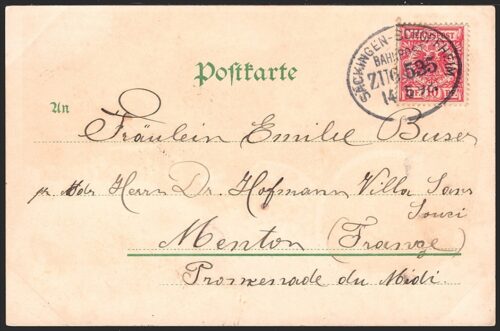 SÄCKINGEN-SCHOPFHEIM
BAHNPOST
ZUG 535
14 5
Postkarte
An
Fräulein Emilie Buser
pr. Adr Herrn Dr. Hofmann Villa Sans
Souci
Menton (France)
Promenade du Midi.